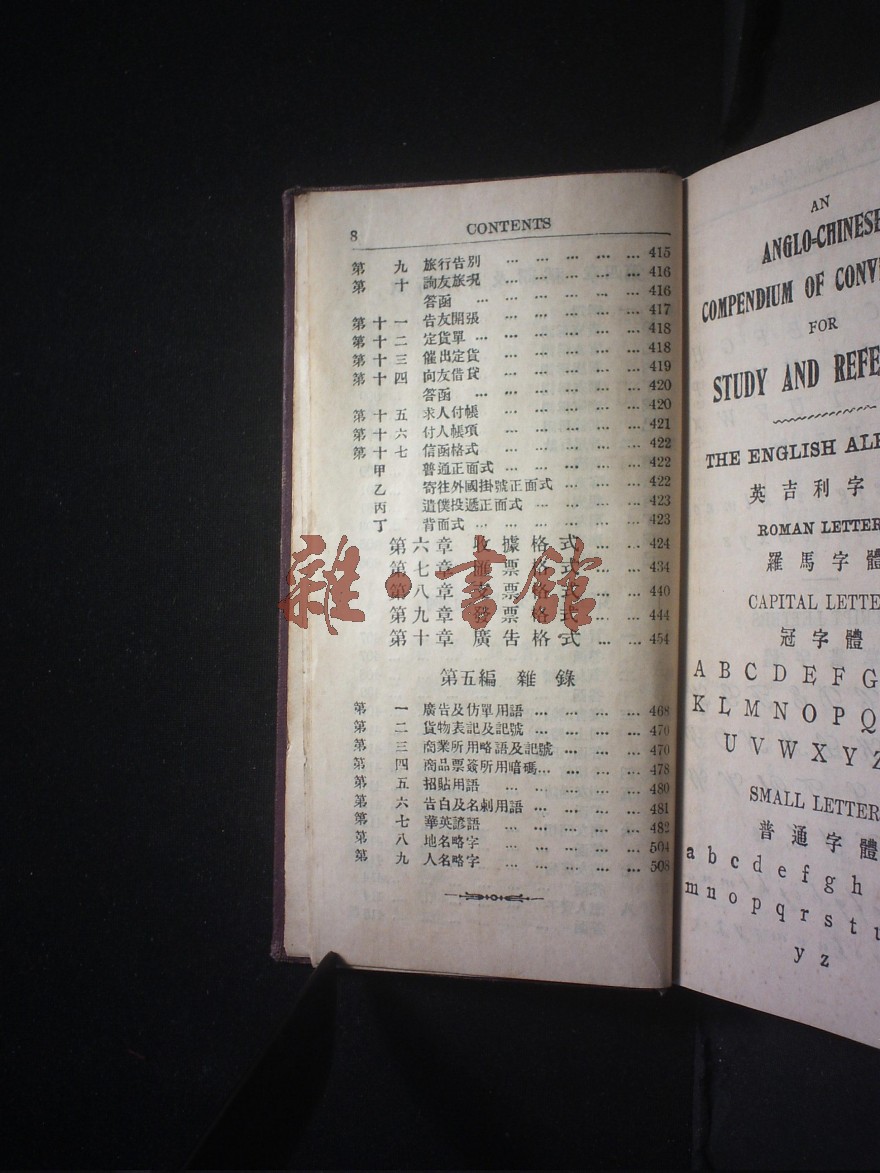 8 CONTENTS
第 九 旅行告別 … … … … … 415
第 十 詢友旅況 … … … … … 416
答函 … … … … … … 416
第十一 告友開張 … … … … … 417
第十二 定貨單 … … … … … … 418
第十三 催出定貨 … … … … … 418
第十四 向友借貸 … … … … … 419
答函 … … … … … … 420
第十五 求人付帳 … … … … … 420
第十六 付人帳項 … … … … … 421
第十七 信函格式 … … … … … 422
甲 普通正面式 … … … … … 422
乙 寄往外國掛號正面式 … … … 422
丙 遣僕投遞正面式 … … … … 423
丁 背面式 … … … … … … 423
第六章 收據格式 … … 424
第七章 匯票格式 … … 434
第八章 支票格式 … … 440
第九章 發票格式 … … 444
第十章 廣告格式 … … 454
第五編 雜 錄
第 一 廣告及仿單用語 … … … … 468
第 二 貨物表記及記號 … … … … 470
第 三 商業所用略語及記號 … … … 470
第 四 商品票簽所用暗碼 … … … … 478
第 五 招貼用語 … … … … … 480
第 六 告白及名刺用語 … … … … 481
第 七 華英諺語 … … … … … 482
第 八 地名略字 … … … … … 504
第 九 人名略字 … … … … … 508
雜·書館
AN
ANGLO-CHINESE
COMPENDIUM OF
FOR
STUDY AND
THE ENGLISH
英吉利字
ROMAN LETTER
羅馬字體
CAPITAL LETTE
冠字體
A B C D E F G
K L M N O P Q
U V W X Y Z
SMALL LETTER
普通字體
a b c d e f g h
m n o p q r s t u
y z